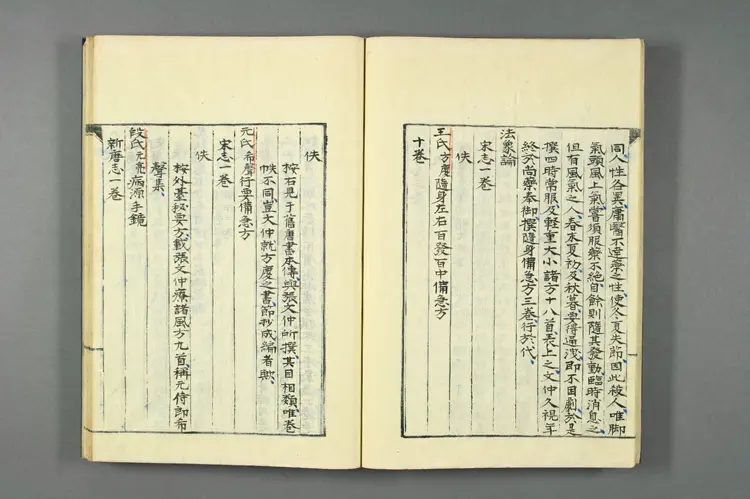 同人性各異庸醫不達藥之性使冬夏失節因此殺人唯脚
氣頭風上氣嘗須服藥不絶自餘則隨其發動臨時消息之
但有風氣之人春末夏初及秋暮要得通洩即不困劇於是
撰四時常服及軽重大小諸方十八首表上之文仲久視年
終於尚藥奉御撰隨身備急方三卷行於代
法象論
宋志一卷
佚
王氏方慶隨身左右百發百中備急方
十卷
佚
按右見于舊唐書本傳與張文仲所撰其目相類唯卷
帙不同豈文仲就方慶之書節抄成編者歟
元氏希聲行要備急方
宋志一卷
佚
按外臺秘要方載張文仲療諸風方九首稱元侍郎希
聲集
段氏元亮病源手鏡
新唐志一卷